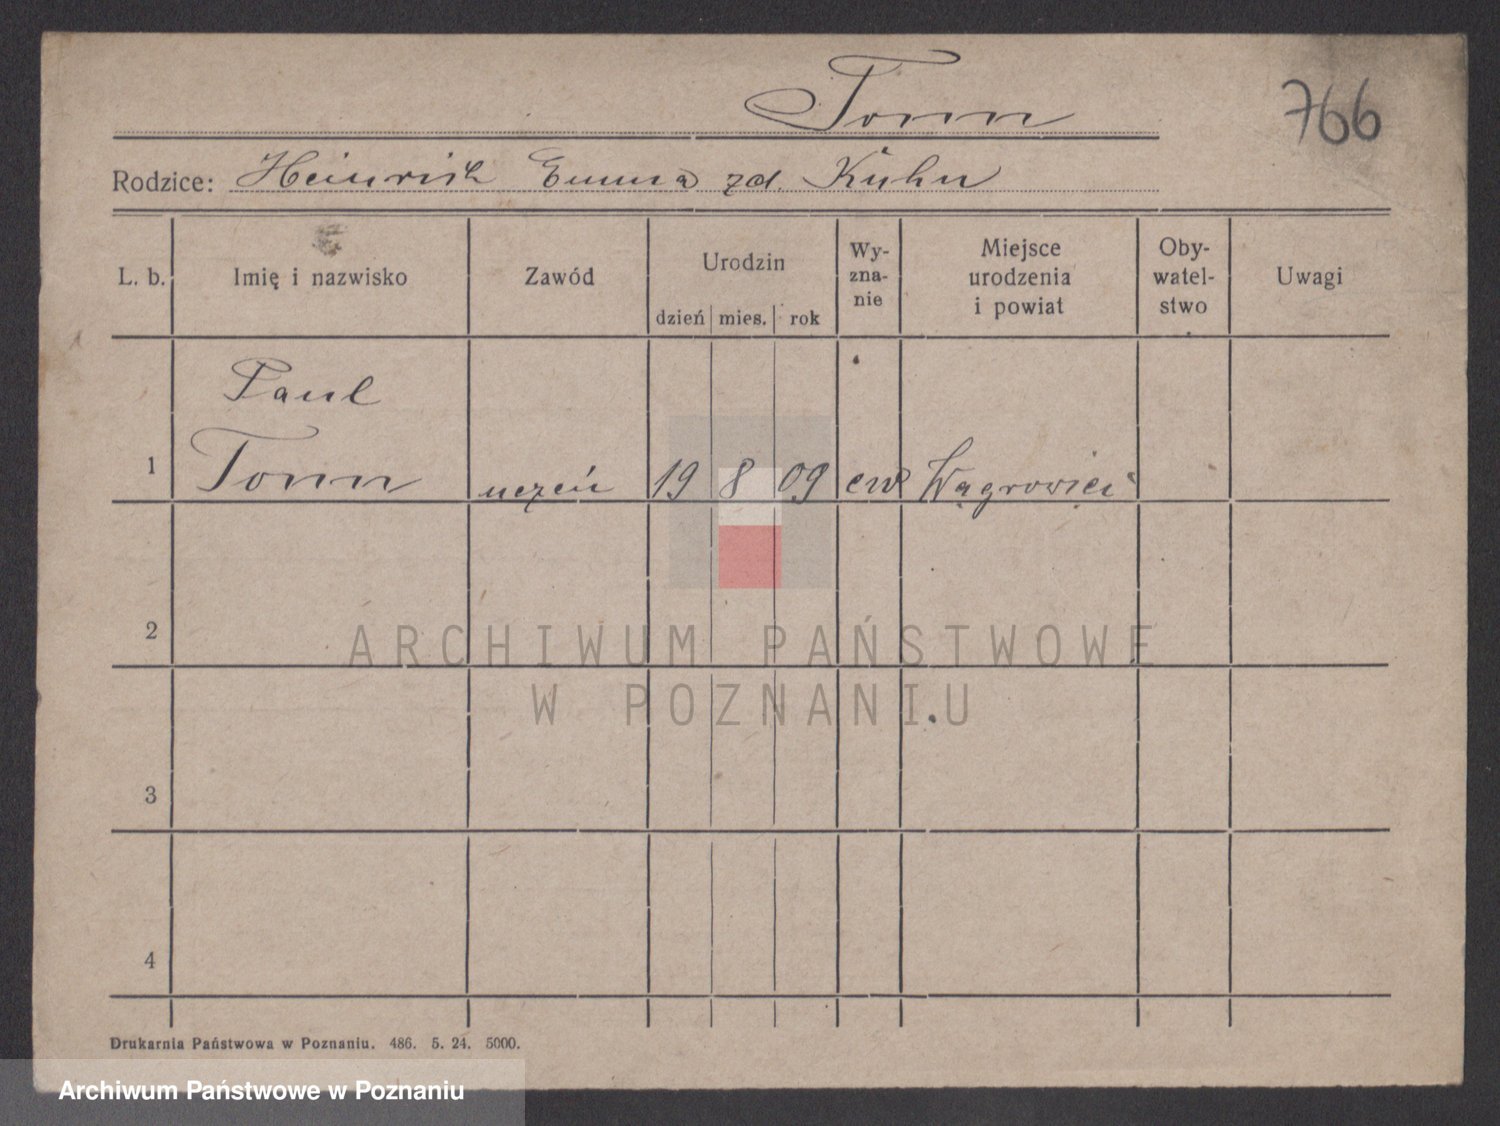 Tonn
766
Rodzice: Heinrich Emma zd. Kühn
L. b.
Imię i nazwisko
Zawód
Urodzin
dzień mies. rok
Wy-
zna-
nie
Miejsce
urodzenia
i powiat
Oby-
watel-
stwo
Uwagi
Paul
1 Tonn uczeń 19 8 09 ew Wągrowiec
2
3
4
ARCHIWUM PAŃSTWOWE
W POZNANIU
Drukarnia Państwowa w Poznaniu. 486. 5. 24. 5000.
Archiwum Państwowe w Poznaniu